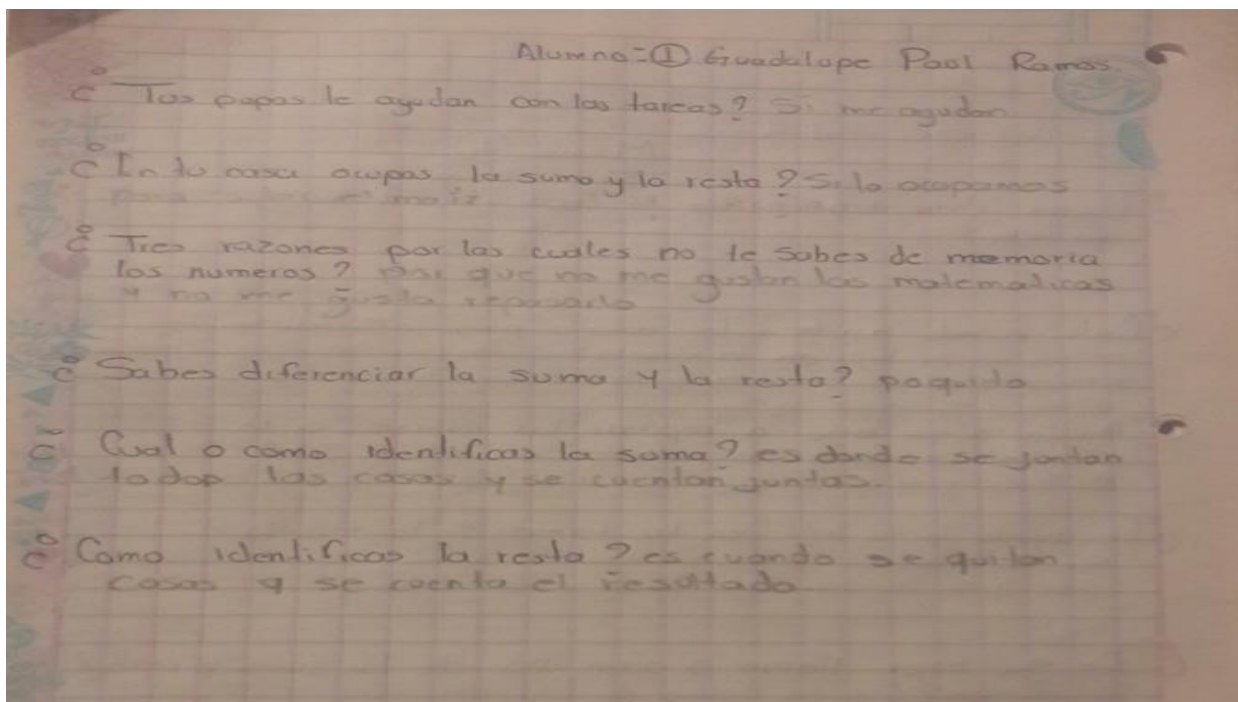 Alumno=① Guadalupe Pool Ramos
¿ Tus papas te ayudan con las tareas? Si me ayudan
¿ En tu casa ocupas la suma y la resta? Si lo ocupamos
para el maiz
¿ Tres razones por las cuales no te sabes de memoria
los numeros? por que no me gustan las matematicas
y no me gusta repasarlo
¿ Sabes diferenciar la suma y la resta? poquito
¿ Cual o como identificas la suma? es donde se juntan
todas las cosas y se cuentan juntas.
¿ Como identificas la resta? es cuando se quitan
cosas y se cuenta el resultado